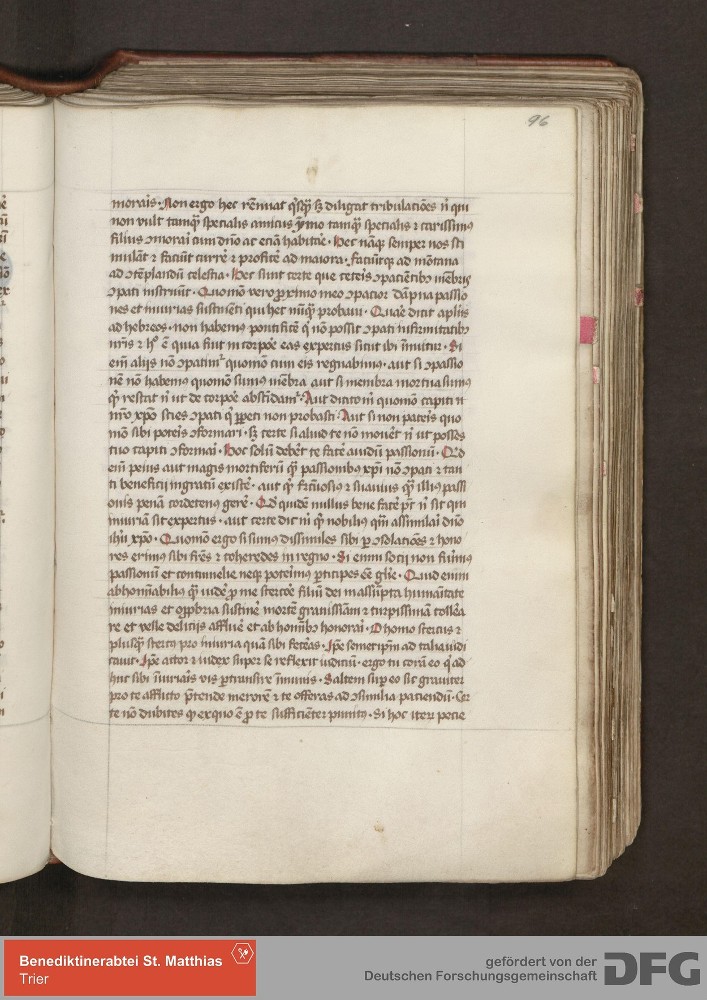 96
morais · Non ergo hec rēnuat qͥsqͣ sꝫ diligat tribulacōes nͥ qui
non vult tamqͣ specialis amicus ymo tamqͣ specialis ⁊ carissimꝰ
filius ꝯmorai cum dn̄o ac eciā habitare · Hec nāqꝫ semper nos sti
mulāt ⁊ faciūt currē ⁊ proficē ad maiora · faciūtqꝫ ad mōtana
ad ꝯtēplandū celestia · Hec sunt certe que ceteis ꝯpacientibꝰ mēbris
ꝯpati instruūt · Quomō vero proximo meo ꝯpacior
nes et iniurias sustinēti qui hec nūqͣ probaui · dicit aplūs
ad hebreos · non habemꝰ pontificē qͥ nō possit ꝯpati infirmitatibꝰ
nr̄is ⁊ ē quia fuit in corpoe eas expertus sicut ibi īnuitur · Si
em̄ aliis nō ꝯpatimͬ quomō cum eis regnabimꝰ · aut si ꝯpassio
nē nō habemꝰ quomō sumꝰ mēbra aut si membra mortua sumꝰ
qͥ restat nͥ ut de corpoe absīdamͬ · Aut dicito m̄ quomō capiti tͦ
n̄ro xp̄o scies ꝯpati qͥ ꝑpeti non probasti · Aut si non pateis quo
mō sibi poteis ꝯformari · Sꝫ certe si aliud te nō mouēt nͥ ut posses
tuo capiti ꝯformai · Hoc solū debēt te facē auidū passionū · Qͥd
em̄ peius aut magis mortiferū qͣ passionibꝰ xp̄i nō ꝯpati ⁊ tan
ti beneficii ingratū existē · aut qͥ ⁊ suauius qͣ illiꝰ passi
onis penā cordetenus gerē · Qͥd quidē nullus bene facē pt̄ nͥ sit qui
iniuriā sit expertus · aut certe dic m̄ qͥ nobilius qͣm assimilai dn̄o
ih̄u xp̄o · Quomō ergo si sumꝰ dissimiles sibi ꝑ ꝯsolacōes ⁊ hono
res erimus sibi frēs ⁊ coheredes in regno · Si enim socij non fuimꝰ
passionū et contumelie neqꝫ poteimꝰ ꝑticipes eē gl̄ie · Quid enim
abhominabiliꝰ qͣ vidē ꝓ me stercoe filiū dei in assūpta humanitate
iniurias et opprobria sustinē mortē grauissimā ⁊ turpissimā tollera
re et velle deliciis affluē et ab hominibꝰ honorai · O homo stercus ⁊
plusqͣ stercus pro iniuria quā sibi feceas · Ipse semetipm̄ ad talia iudi
cauit · Ipse actor ⁊ iudex super se reflexit iudiciū · ergo tu corā eo qͥ ad
huc sibi iniurais vis ꝑtransire īmunis · Saltem suꝑ eo sic grauiter
pro te afflicto p̄tende merorē ⁊ te offeras ad ꝯsimilia paciendū · Cer
te nō dubites qꝫ ex quo ē ꝓ te sufficiēter punitꝰ · Si hoc iteū pecie
Benediktinerabtei St. Matthias
Trier
gefördert von der
Deutschen Forschungsgemeinschaft
DFG